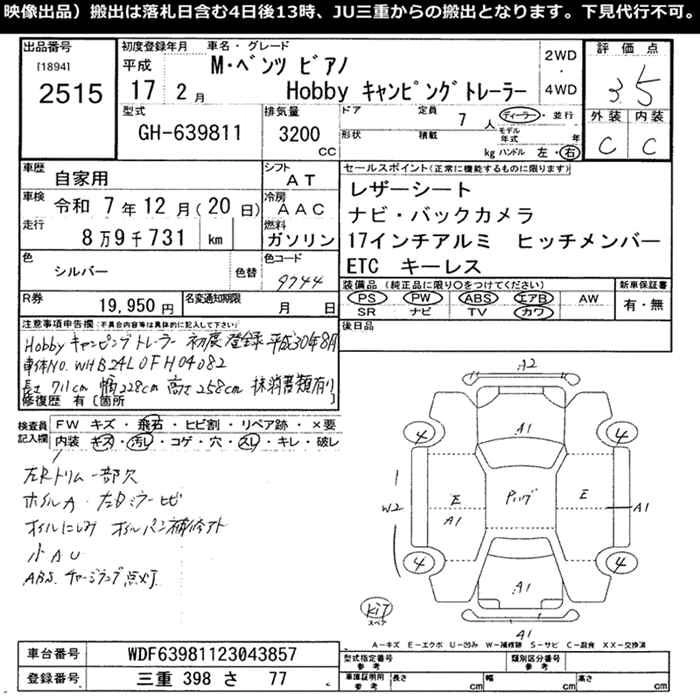 映像出品）搬出は落札日含む4日後13時、JU三重からの搬出となります。下見代行不可。
出品番号 初度登録年月 車名・グレード 2WD ・ 4WD 評価点
[1894] 平成 M・ベンツ ビアノ
2515 17 2月 Hobby キャンピングトレーラー 3.5
型式 排気量 ドア 定員 7人 ディーラー・並行 外装 内装
GH-639811 3200 CC 形状 積載 kg モデル年式 年 ハンドル 左・右 C C
車歴 自家用 シフト AT セールスポイント(正常に機能するものに限ります)
車検 令和 7年12月(20日) 冷房 AAC レザーシート
ナビ・バックカメラ
走行 8万9千731 km 燃料 ガソリン 17インチアルミ ヒッチメンバー
色 シルバー 色替 色コード 9744 ETC キーレス
装備品 (純正品に限り○をつけてください) 新車保証書
R券 19,950円 名変通知期限 月 日 PS PW ABS エアB AW 有・無
SR ナビ TV カワ
注意事項申告欄(不具合内容等は具体的に記入して下さい) 後日品
Hobby キャンピングトレーラー 初度登録 平成30年8月
車体No. WHB24L0FH04082
長さ 711cm 幅228cm 高さ258cm 抹消書類有り
修復歴 有 [箇所 ]
検査員記入欄 FW キズ・飛石・ヒビ割・リペア跡・×要
内装 キズ・汚レ・コゲ・穴・スレ・キレ・破レ
左Rトリム一部欠
ホイルA・左Dミラーヒビ
オイルにじみ オイルパン補修アト
小AU
ABS、チャージランプ点灯
A2
A1
4 4
W2 E A1 Pルーフ E A1
4 4
A1
キット スペア
A1
A-キズ E-エクボ U-凹み W-補修跡 S-サビ C-腐食 XX-交換済
車台番号 WDF63981123043857 型式指定番号 参考 類別区分番号 参考
登録番号 三重 398 さ 77 車庫証明用 参考 長さ cm 幅 cm 高さ cm